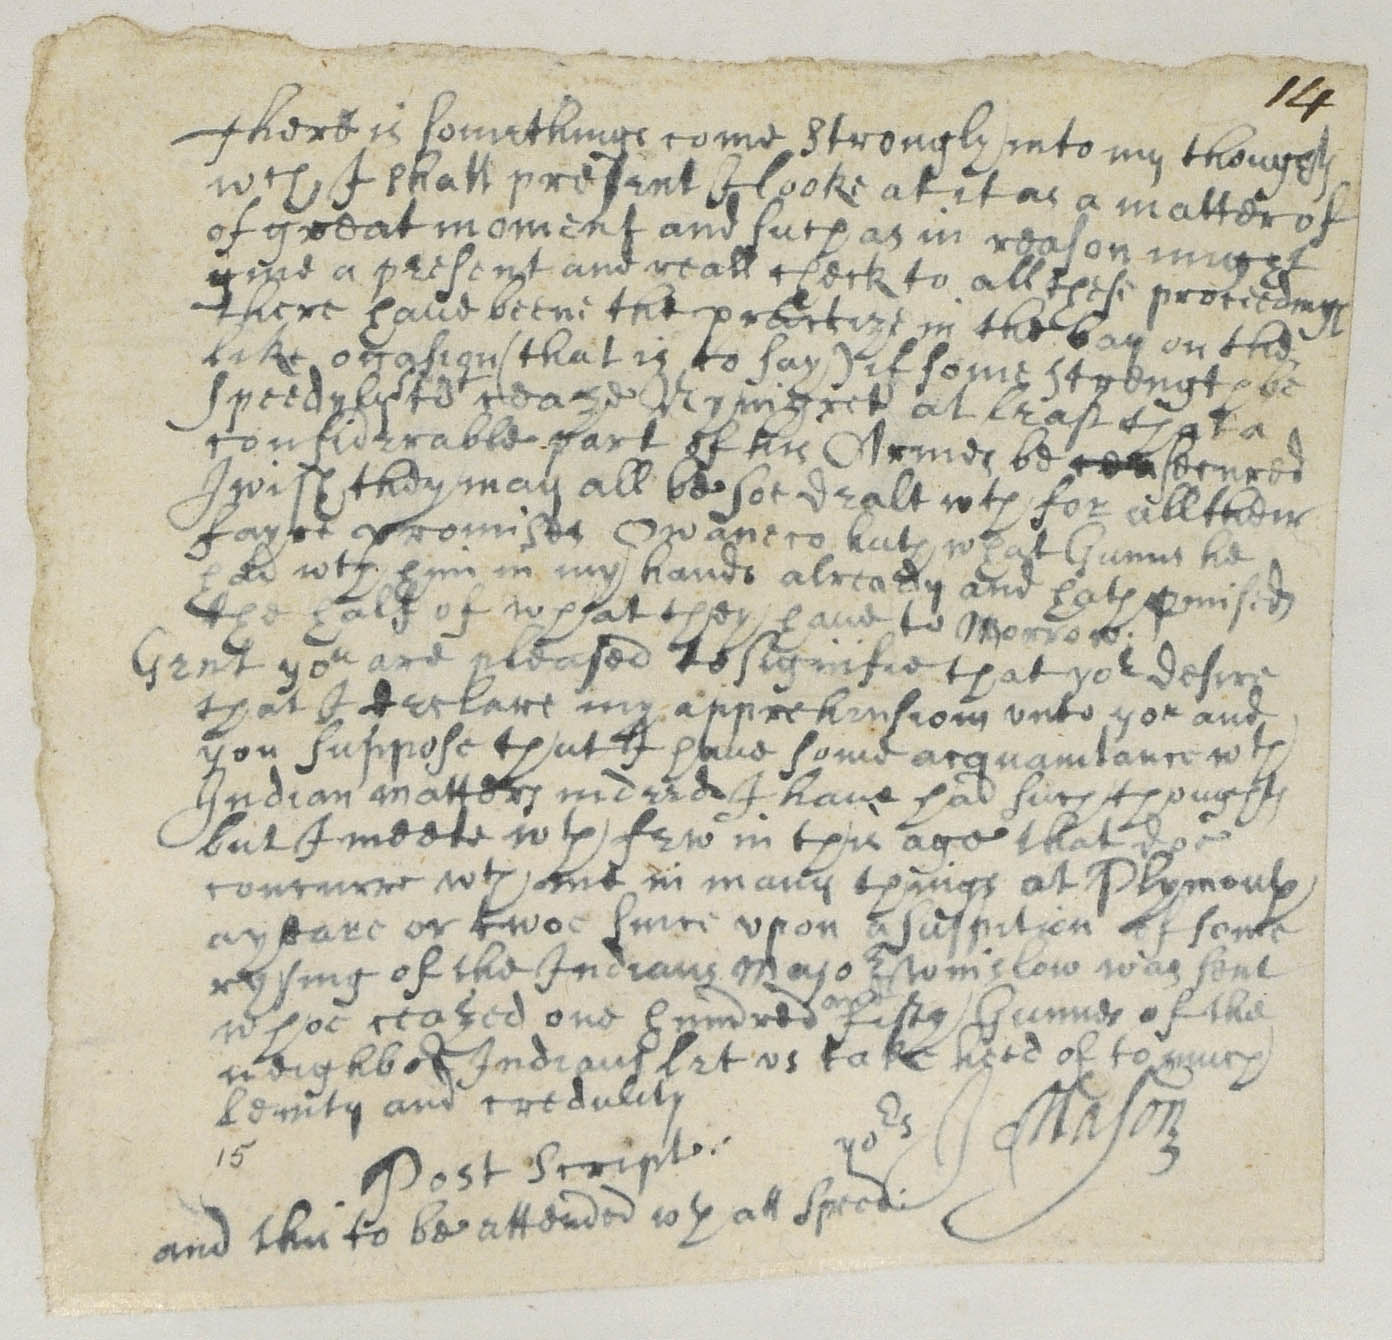 14
There is somethings come strongly into my thoughts
wch I shall present I looke at it as a matter of
of great moment and such as in reason might
give a present and reall check to all these proceedings
there have beene the practize in the bay on the
like ocasion (that is to say) if some strength be
speedyly sent to ceaze Nynigret at least that a
considerable part of his Armes be secured
I wish they may all be soe dealt wth for all their
fayre promises Owaneco hath what Gunns he
had wth him in my hands already and hath pmised
the half of what they have to Morrow.
Gent you are pleased to signifie that yor desire
that I declare my apprehensions unto you and
you suppose that I have some acquaintance wth
Indian matters indeed I have had such thoughts
but I meete wth few in this age that doe
concurre wth me in many things at Plymouth
a yeare or twoe since upon a suspition of some
rysing of the Indians Majo r Winslow was sent
whoe ceazed one hundred and fifty Gunnes of the
neighbor Indians let us take heed of to much
lenity and credulity
yors J Mason
15
Post script.
and this to be attended wth all speed.